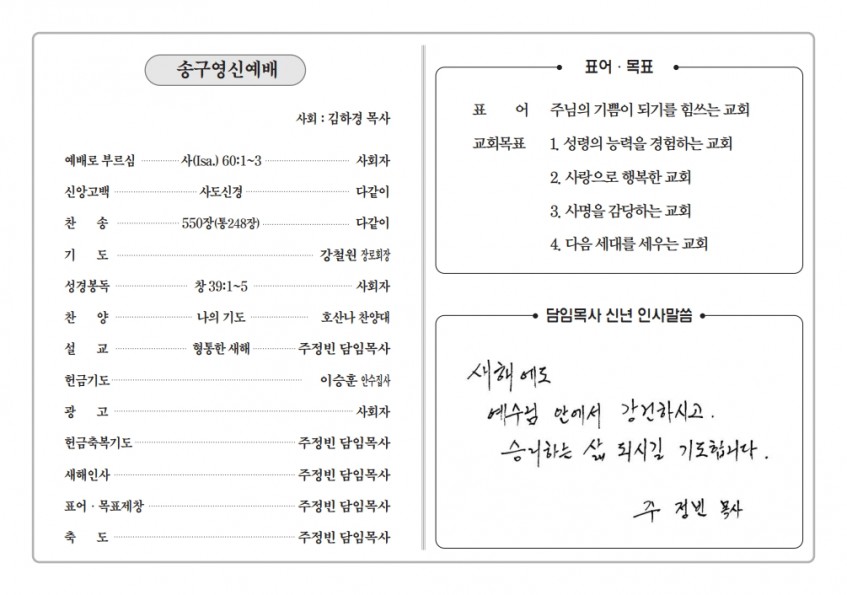 송구영신예배
사회 : 김하경 목사
예배로 부르심 사(Isa.) 60:1~3 사회자
신앙고백 사도신경 다같이
찬 송 550장(통248장) 다같이
기 도 강철원 장로회장
성경봉독 창 39:1~5 사회자
찬 양 나의 기도 호산나 찬양대
설 교 형통한 새해 주정빈 담임목사
헌금기도 이승훈 안수집사
광 고 사회자
헌금축복기도 주정빈 담임목사
새해인사 주정빈 담임목사
표어 · 목표제창 주정빈 담임목사
축 도 주정빈 담임목사
표어 · 목표
표 어 주님의 기쁨이 되기를 힘쓰는 교회
교회목표 1. 성령의 능력을 경험하는 교회
2. 사랑으로 행복한 교회
3. 사명을 감당하는 교회
4. 다음 세대를 세우는 교회
담임목사 신년 인사말씀
새해에도
예수님 안에서 강건하시고.
승리하는 삶 되시길 기도합니다.
주 정빈 목사